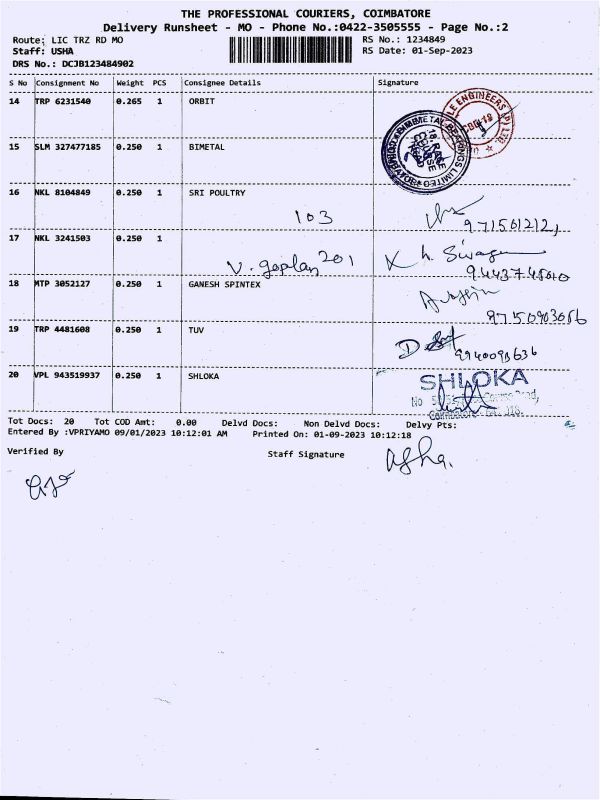 THE PROFESSIONAL COURIERS, COIMBATORE
Delivery Runsheet - MO - Phone No.:0422-3505555 - Page No.:2
Route: LIC TRZ RD MO RS No.: 1234849
Staff: USHA RS Date: 01-Sep-2023
DRS No.: DCJB123484902
S No Consignment No Weight PCS Consignee Details Signature
14 TRP 6231540 0.265 1 ORBIT
15 SLM 327477185 0.250 1 BIMETAL
16 NKL 8104849 0.250 1 SRI POULTRY
103 9715612121
17 NKL 3241503 0.250 1
V. goplan 201
18 MTP 3052127 0.250 1 GANESH SPINTEX
19 TRP 4481608 0.250 1 TUV
20 VPL 943519937 0.250 1 SHLOKA
SHLOKA
Tot Docs: 20 Tot COD Amt: 0.00 Delvd Docs: Non Delvd Docs: Delvy Pts:
Entered By :VPRIYAMO 09/01/2023 10:12:01 AM Printed On: 01-09-2023 10:12:18
Verified By Staff Signature
Usha.